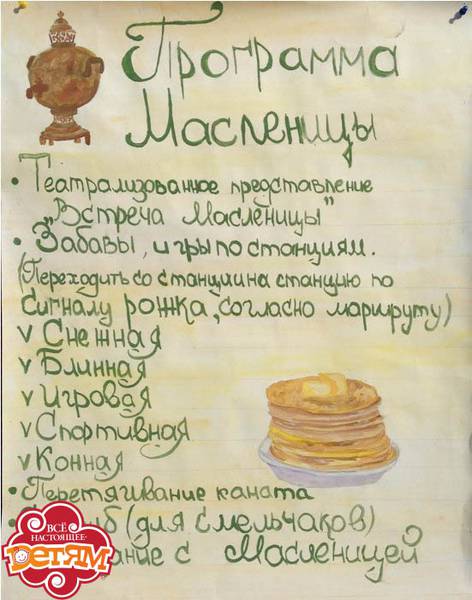 Программа
Масленицы
• Театрализованное представление
"Встреча Масленицы"
• Забавы, игры по станциям.
(Переходить со станции на станцию по
сигналу рожка, согласно маршруту)
v Снежная
v Блинная
v Игровая
v Спортивная
v Конная
• Перетягивание каната
(для смельчаков)
с Масленицей
ВСЁ
НАСТОЯЩЕЕ-
DЕТЯМ